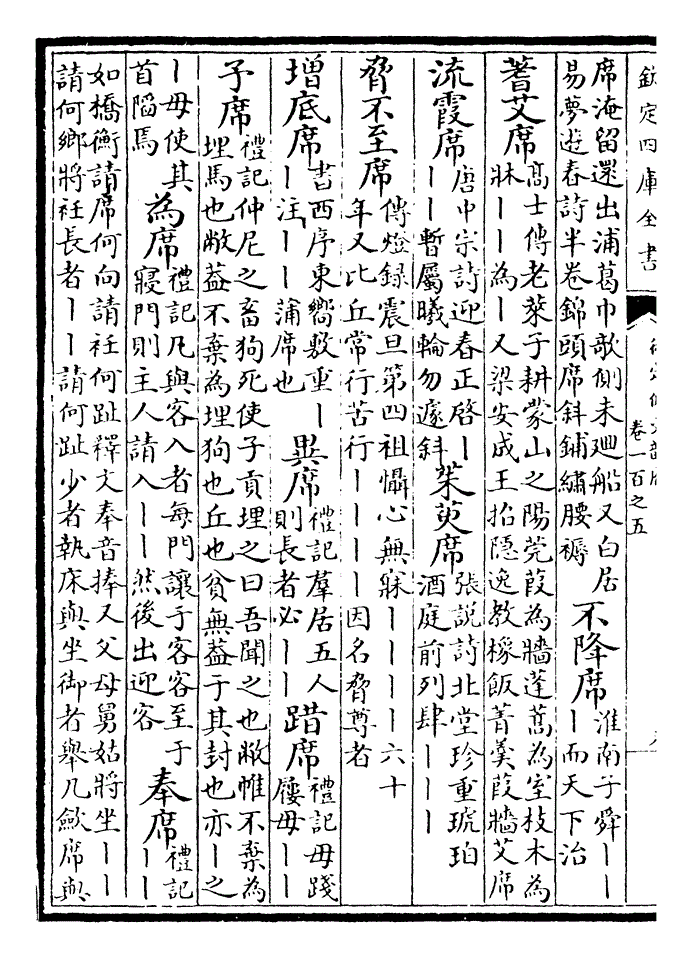 欽定四庫全書
卷一百之五
席淹留還出浦葛巾歌側未廻船又白居
易夢遊春詩半卷錦頭席斜鋪繡腰褥
不降席
淮南子舜丨丨
丨而天下治
蓍艾席
高士傳老萊子耕蒙山之陽莞葭為牆蓬蒿為室枝木為
牀丨丨為丨又梁安成王招隱逸教橡飯菁羹葭牆艾席
流霞席
唐中宗詩迎春正啓丨
丨丨暫屬曦輪勿遽斜
茱萸席
張説詩北堂珍重琥珀
酒庭前列肆丨丨丨
脅不至席
傳燈録震旦第四祖懾心無寐丨丨丨丨六十
年又比丘常行苦行丨丨丨丨因名脅尊者
增底席
書西序東嚮敷重丨
丨注丨丨蒲席也
異席
禮記羣居五人
則長者必丨丨
踖席
禮記毋踐
屨毋丨丨
予席
禮記仲尼之畜狗死使子貢埋之曰吾聞之也敝帷不棄為
埋馬也敝葢不棄為埋狗也丘也貧無葢于其封也亦丨之
丨毋使其
首陷焉
為席
禮記凡與客入者每門讓于客客至于
寢門則主人請入丨丨然後出迎客
奉席
禮記
丨丨
如橋衡請席何向請衽何趾釋文奉音捧又父母舅姑將坐丨丨
請何鄉將衽長者丨丨請何趾少者執床與坐御者舉几歛席與